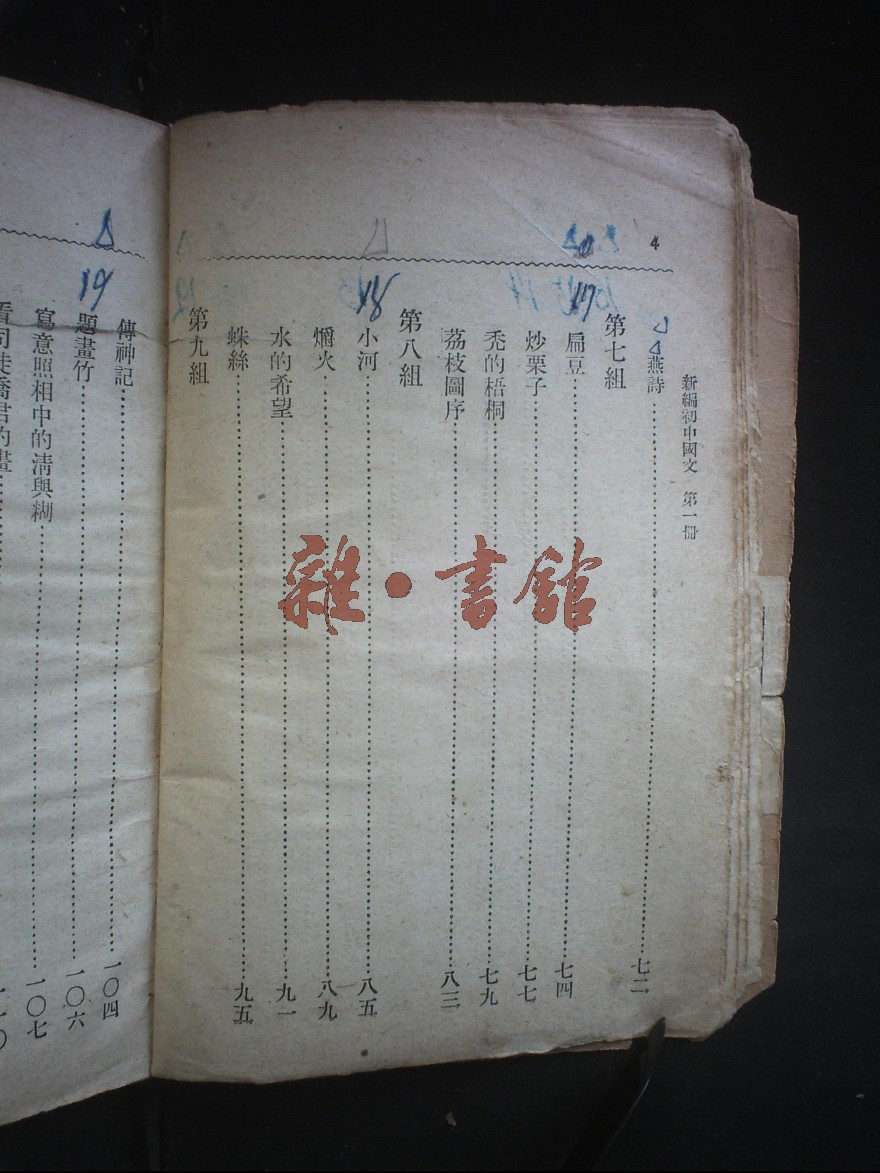 4
新編初中國文 第一冊
燕詩……七二
第七組
扁豆……七四
炒栗子……七七
禿的梧桐……七九
荔枝圖序……八三
第八組
小河……八五
爝火……八九
水的希望……九一
蛛絲……九五
第九組
傳神記……一〇四
題畫竹……一〇六
寫意照相中的清與糊……一〇七
看司徒喬君的畫……一一〇
17
18
19
雜·書館